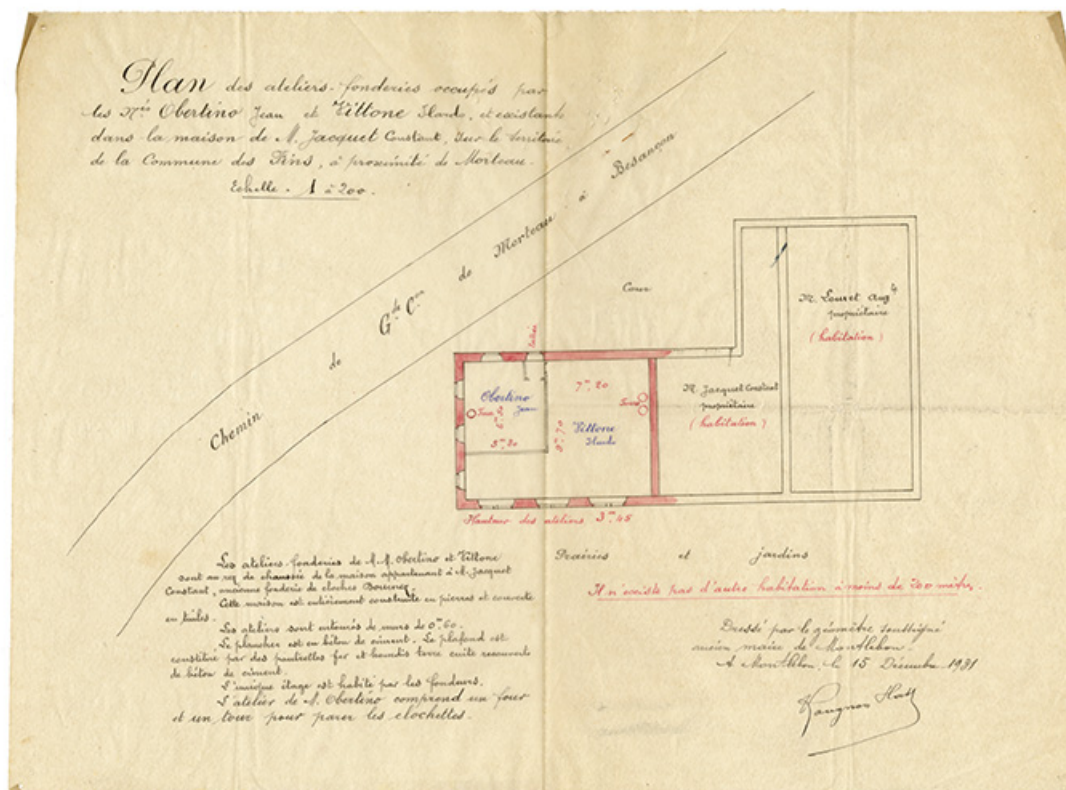 Plan des ateliers-fonderies occupés par
les Mrs Obertino Jean et Vittone, et existants
dans la maison de M. Jacquet Constant, sur le territoire
de la Commune des Fins, à proximité de Morteau.
Echelle. 1 à 200.
Chemin de Gde Con de Morteau à Besançon
Cour
M. Louvet Aug
propriétaire
(habitation)
Entrée
Obertino
Jean
Four
5m,80
7m,20
9m,70
Vittone
Fours
M. Jacquet Constant
propriétaire
(habitation)
Hauteur des ateliers 3m,45
Prairies et jardins
Il n'existe pas d'autre habitation à moins de 200 mètres.
Les ateliers-fonderies de M.M. Obertino et Vittone
sont au rez de chaussée de la maison appartenant à M. Jacquet
Constant, ancienne fonderie de cloches
Cette maison est entièrement construite en pierres et couverte
en tuiles.
Les ateliers sont entourés de murs de 0m,60.
Le plancher est en béton de ciment. Le plafond est
constitué par des poutrelles fer et hourdis terre cuite recouverts
de béton de ciment.
L'unique étage est habité par les fondeurs.
L'atelier de M. Obertino comprend un four
et un tour pour parer les clochettes.
Dressé par le géomètre soussigné
ancien maire de Montlebon.
A Montlebon, le 15 Décembre 1931